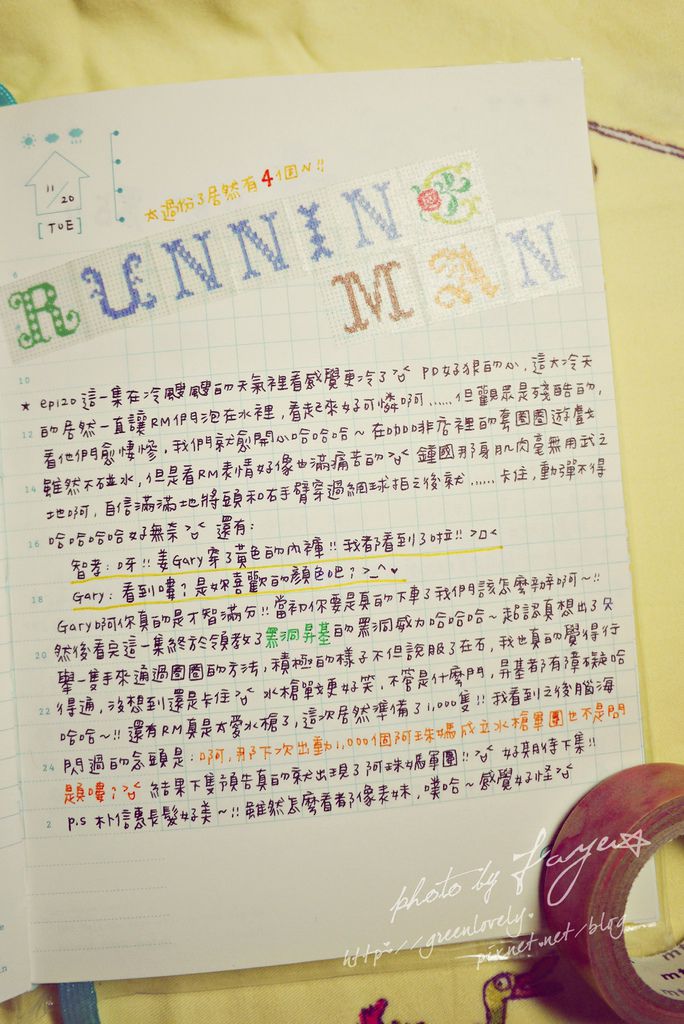 11/20
[TUE]
☆過份了居然有4個N!!
RUNNING
MAN
6
10
12
14
16
18
20
22
24
2
★ ep120 這一集在冷颼颼的天氣裡看感覺更冷了>"< PD好狠的心,這大冷天
的居然一直讓RM們泡在水裡,看起來好可憐啊......但觀眾是殘酷的,
看他們愈悽慘,我們就愈開心哈哈哈~在咖啡店裡的套圈圈遊戲
雖然不碰水,但是看RM表情好像也滿痛苦的>"< 鍾國那身肌肉毫無用武之
地啊,自信滿滿地將頭和右手臂穿過網球拍之後就......卡住,動彈不得
哈哈哈哈好無奈>"< 還有:
智孝:呀!!姜Gary穿了黃色的內褲!!我都看到了啦!!>口<
Gary:看到嘍?是妳喜歡的顏色吧?>_^♥
Gary啊你真的是不智滿分!!當初你要是真的下車了我們該怎麼辦啊~!!
然後看完這一集終於領教了黑洞昇基的黑洞威力哈哈哈~起認真想出了只
舉一隻手來通過圈圈的方法,積極的樣子不但說服了在石,我也真的覺得行
得通,沒想到還是卡住>"< 水槍戰更好笑,不管是什麼門,昇基都有障礙哈
哈哈~!! 還有RM真是太愛水槍了,這次居然準備了1,000隻!!我看到之後腦海
閃過的念頭是:啊,那下次出動1,000個阿珠媽成立水槍軍團也不是問
題嘍?>"< 結果下集預告真的就出現了阿珠媽軍團!!>"< 好期待下集!!
p.s 朴信惠長髮好美~!!雖然怎麼看都像表妹,噗哈~感覺好怪>"<
photo by Faye☆
http://greenlovely.
pixnet.net/blog